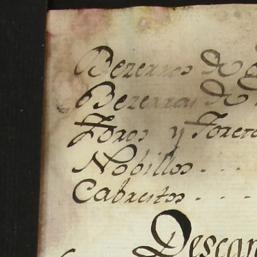 Bezerros de
Bezerras de
Toros y Torero
Nobillos . . .
Cabrestos . . .
Descan